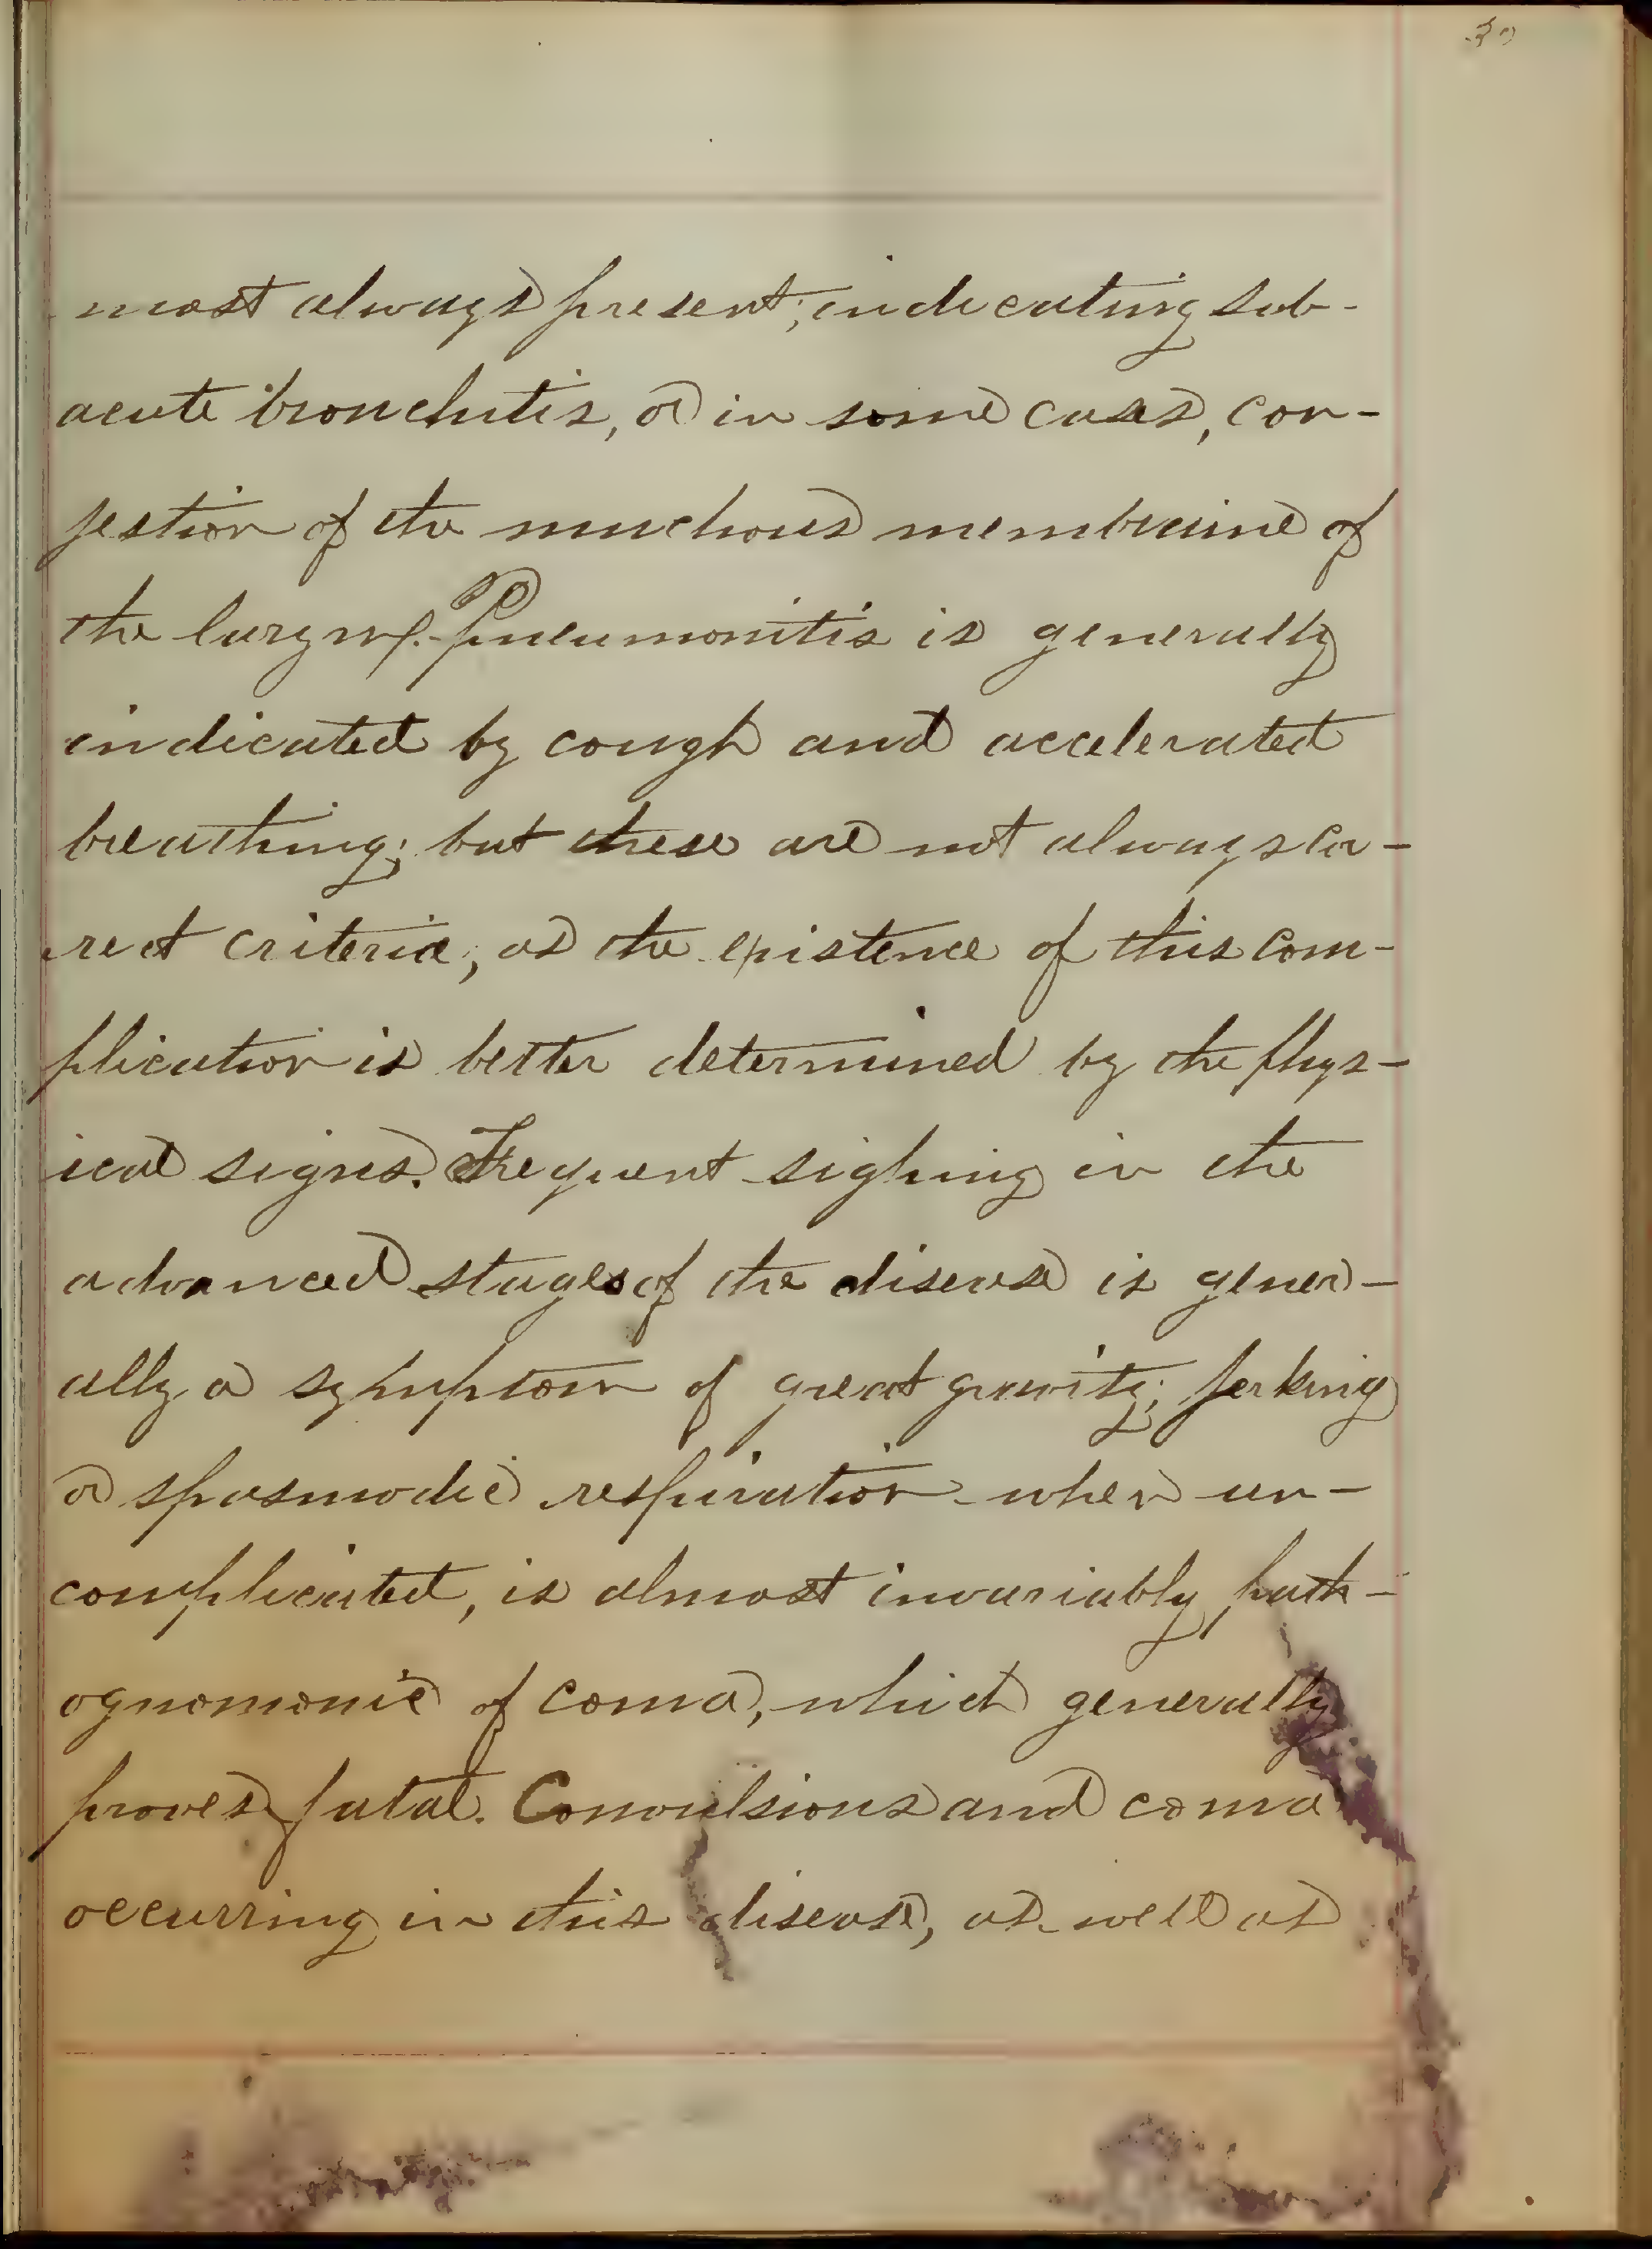 30
most always present; indicating sub-
acute bronchitis, or in some cases, con-
jestion of the muchous membraine of
the larynx. Pneumonitis is generally
indicated by cough and accelerated
breathing; but these are not always cor-
rect criteria; as the existence of this com-
plication is better determined by the phys-
ical signs. Frequent sighing in the
advanced stages of the disease is gener-
ally a symptom of great gravity; jerking
or spasmodic respiration when un-
complicated, is almost invariably path-
ognomonic of coma, which generally
proves fatal. Convulsions and coma
occurring in this disease, as well as